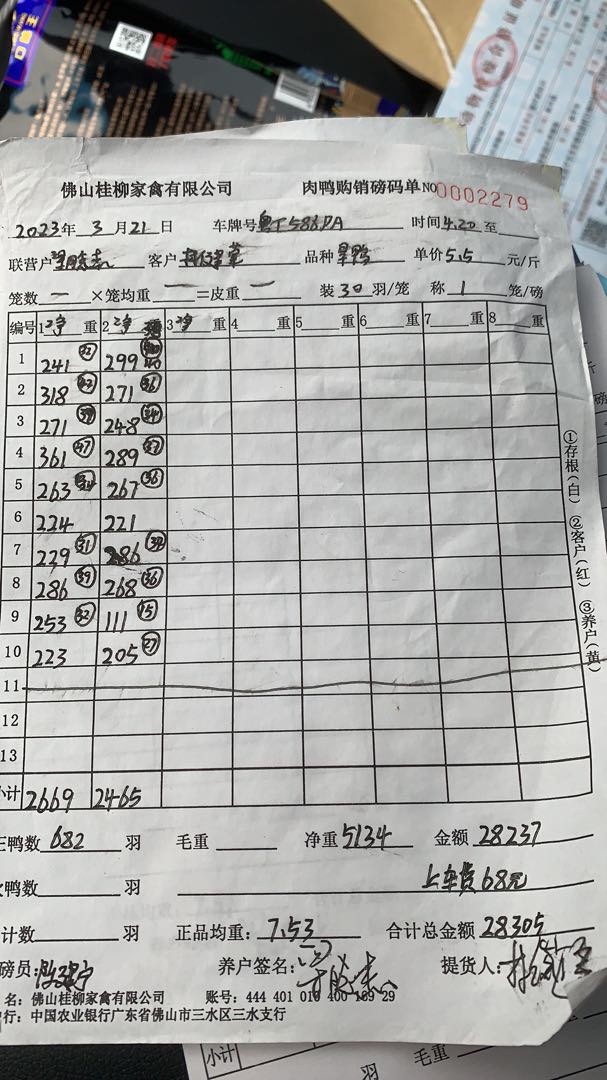 佛山桂柳家禽有限公司 肉鸭购销磅码单 NO 0002279
2023年 3月21日 车牌号 粤T586DA 时间4.20至
联营户 客户 品种 单价5.5元/斤
笼数 一 ×笼均重 一 =皮重 一 装30羽/笼 称1笼/磅
编号 1净重 2净 3净重 4重 5重 6重 7重 8重
1 241 (32) 299
2 318 271 (36)
3 271 248 (34)
4 361 (47) 289
5 263 267 (36)
6 224 221
7 229 (31) 286
8 286 (39) 268 (36)
9 253 (32) 111 (15)
10 223 205 (27)
11
12
13
小计 2669 2465
鸭数 682 羽 毛重 净重 5134 金额 28237
鸭数 羽 上车费68元
计数 羽 正品均重:7.53 合计总金额 28305
磅员: 养户签名: 提货人:
名:佛山桂柳家禽有限公司 账号:444 401 010 400 169 29
行:中国农业银行广东省佛山市三水区三水支行
①存根(白) ②客户(红) ③养户(黄)
小计
羽 毛重